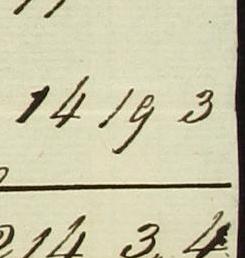 14 19 3
214 3. 4